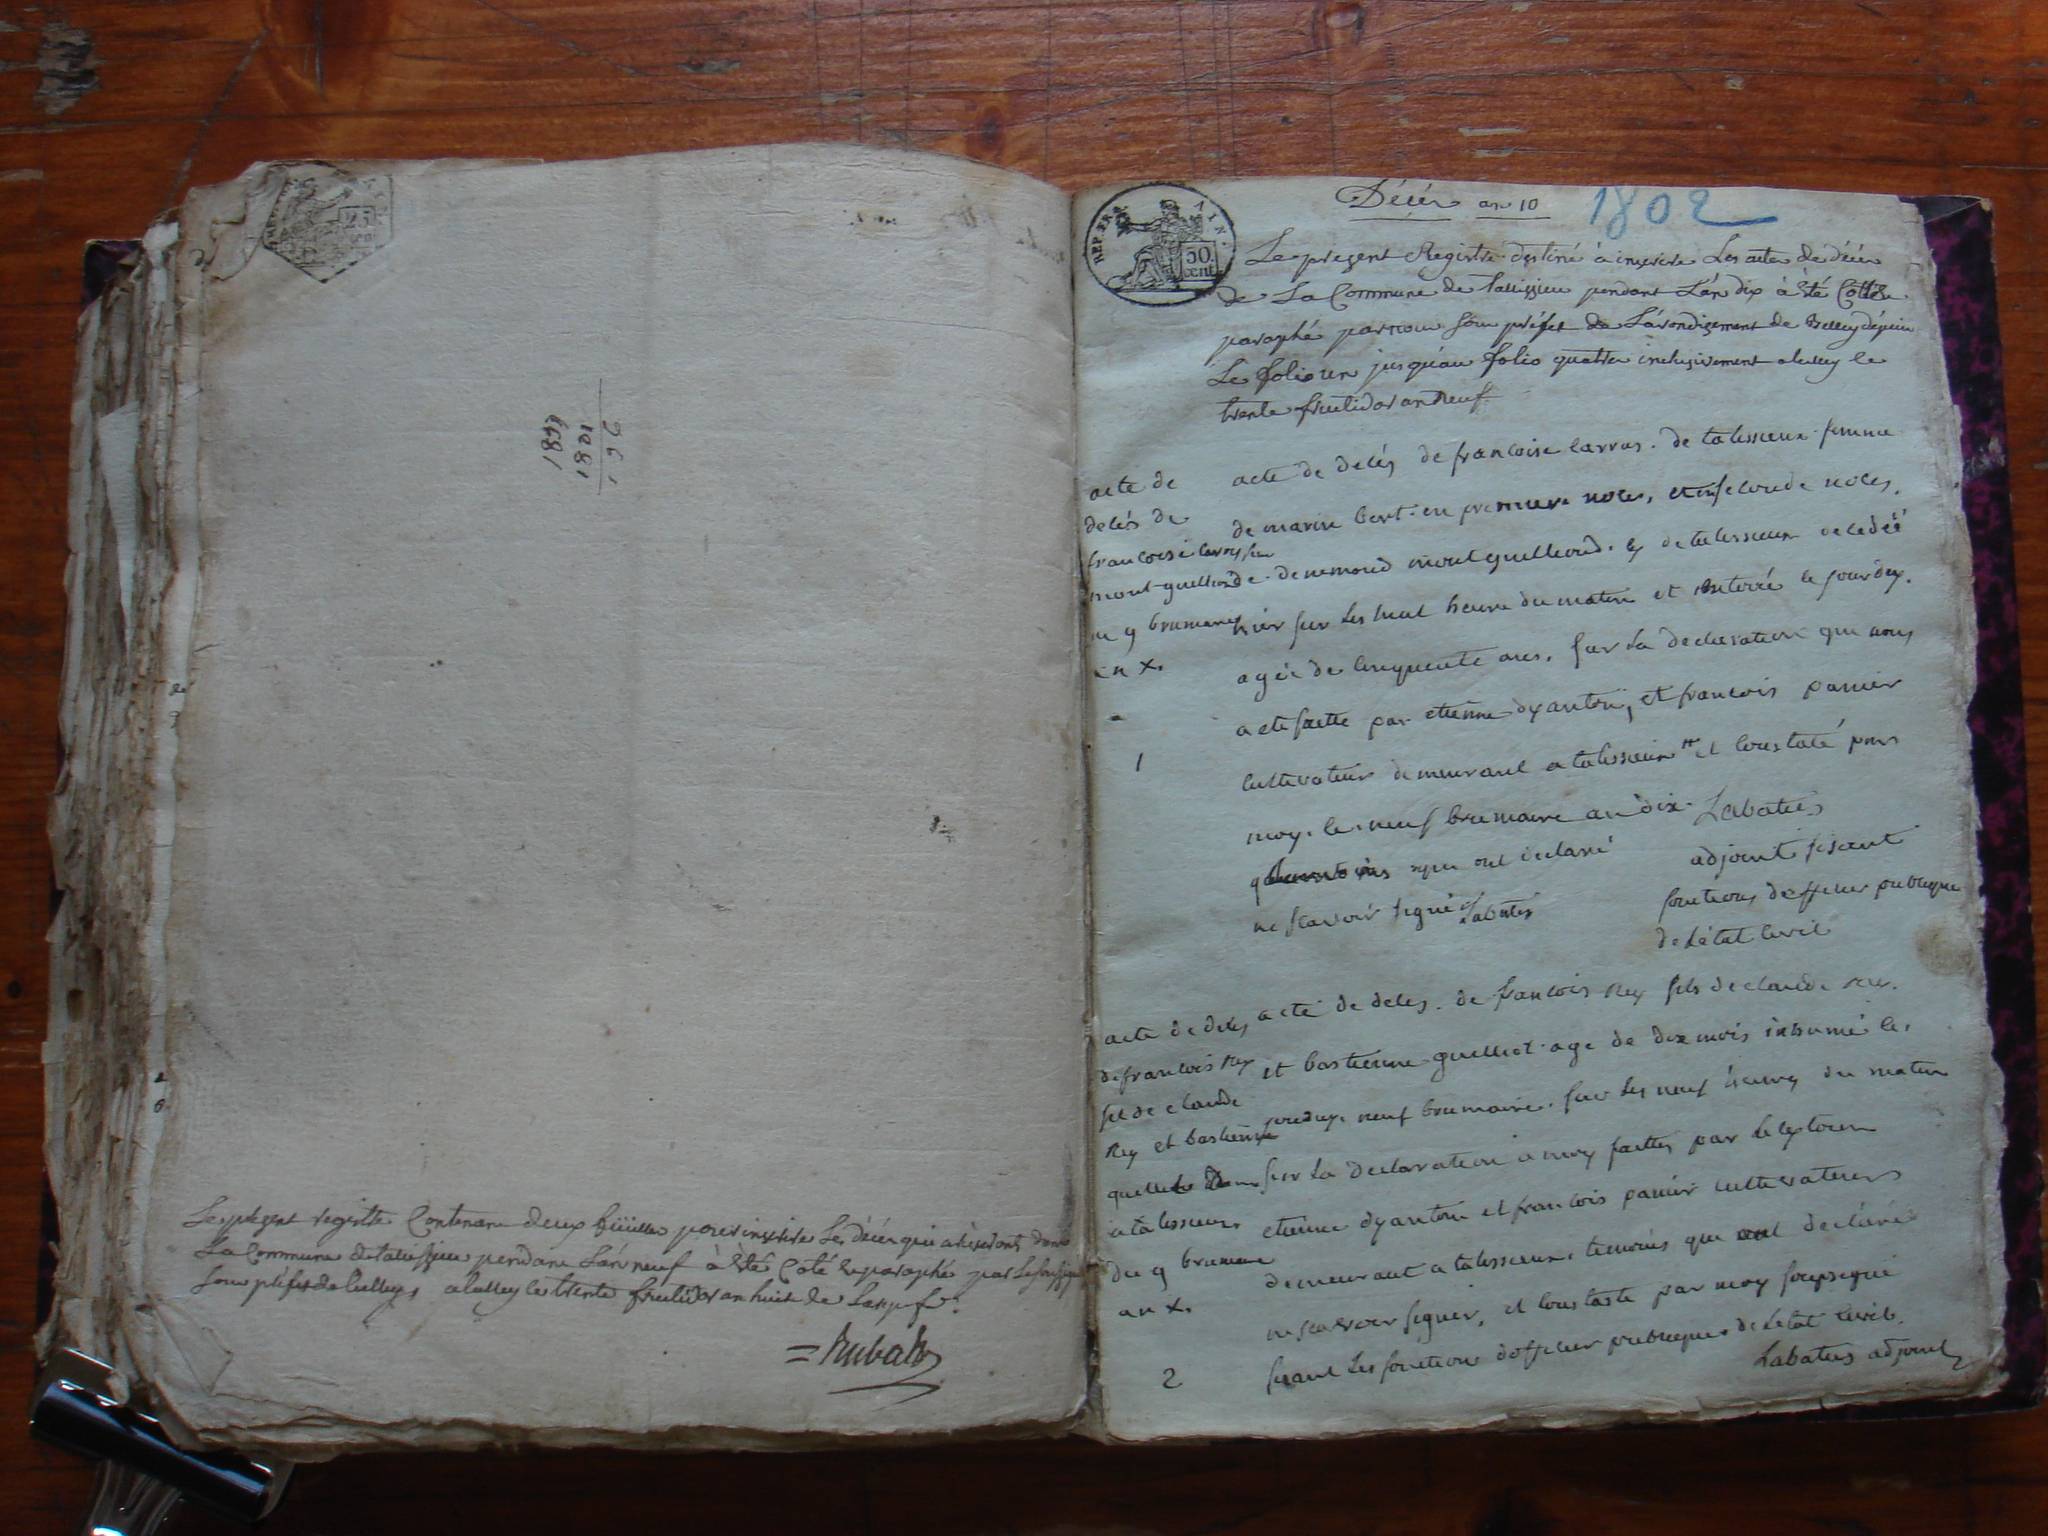 25
261
1281
1881
Le present registre Contenant deux feüilles pour inscrire Les décès qui arriveront dans
La Commune de talissieu pendant L'an neuf à été Coté & paraphé par Le soussigné
sous préfet de belley, a belley le trente fructidor an huit de La rep fr.
Rubat
REP. FRA. AIN.
50 cent
Décès an 10 1802
Le present Registre destiné à inscrire Les actes de décès
de La Commune de talissieu pendant L'an dix à été Cotté &
paraphé par nous sous préfet de L'arrondissement de Belley depuis
Le folio un jusqu'au folio quatre inclusivement a belley le
trente fructidor an neuf
acte de
decés de
francoise
mont guilliond
9 brumaire
an x.
1
acte de decés de francoise carras. de talissieux femme
de marin bert. en premiere noces, et en seconde noces,
de remond mont guilliond. de talissieux decedée
hier sur les huit heure du matin et enterré le jourduy.
agée de cinquente ans. sur La declaration que nous
a eté faitte par etienne dyantoin, et francois panier
cultivateur demeurant a talissieux et constaté par
moy. le neuf brumaire an dix. Labatie
qui ont declaré
ne scavoir signé Labatie
adjoint fesant
fonctions dofficier publique
de Létat civil
acte de deces
de francois Rey
fils de claude
Rey et bastienne
a talissieux
du 9 brumaire
an x.
2
acte de deces. de francois Rey fils de claude Rey.
et bastienne guilliot. age de dix mois inhumé le.
jourduy. neuf brumaire. sur les neuf heures du matin
sur La declaration a moy faittes par
etienne dyantoin et francois panier cultivateurs
demeurant a talissieux. temoins qui ont declaré
ne scavoir signer, et constaté par moy soussigné
fesant Les fonction dofficier publiques de Létat civil.
Labatie adjoint